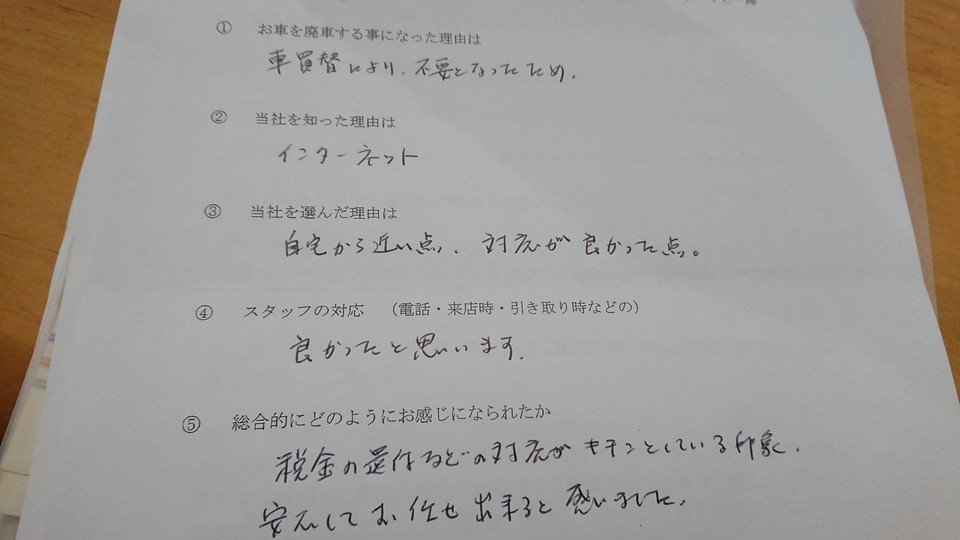 ① お車を廃車する事になった理由は
車買替により、不要となったため。
② 当社を知った理由は
インターネット
③ 当社を選んだ理由は
自宅から近い点、対応が良かった点。
④ スタッフの対応 （電話・来店時・引き取り時などの）
良かったと思います。
⑤ 総合的にどのようにお感じになられたか
税金の還付などの対応がキチンとしている印象。
安心してお任せ出来ると感いました。